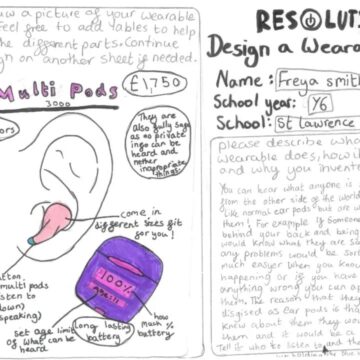 w a picture of your wearable
feel free to add lables to help
the different parts. Continue
gn on another sheet if needed.
Multi Pods
3000
£1,750
They are
also fully safe
as no private
info can be
heard and
neither
inapropriate
things.
ors
come in
different sizes fit
for you!
tton,
multi pods
isten to
down)
speaking)
100%
how
much %
battery
set age limit
of what can be
heard
Long lasting
battery
RESOLUTI
Design a Weara
Name: Freya smith
School year: Y6
School: St Lawrence
please describe wha
wearable does, how i
and why you invente
You can hear what anyone is
from the other side of the world
like normal ear pods but are w
them! For example if someone
behind your back and being
would know what they are s
any problems would be sort
much easier when you know
happening or if you have
anything wrong you can ap
them. The reason that the
disgised as ear pods is tha
knew about them they wo
them and it would be a
Tell it who to listen to and th